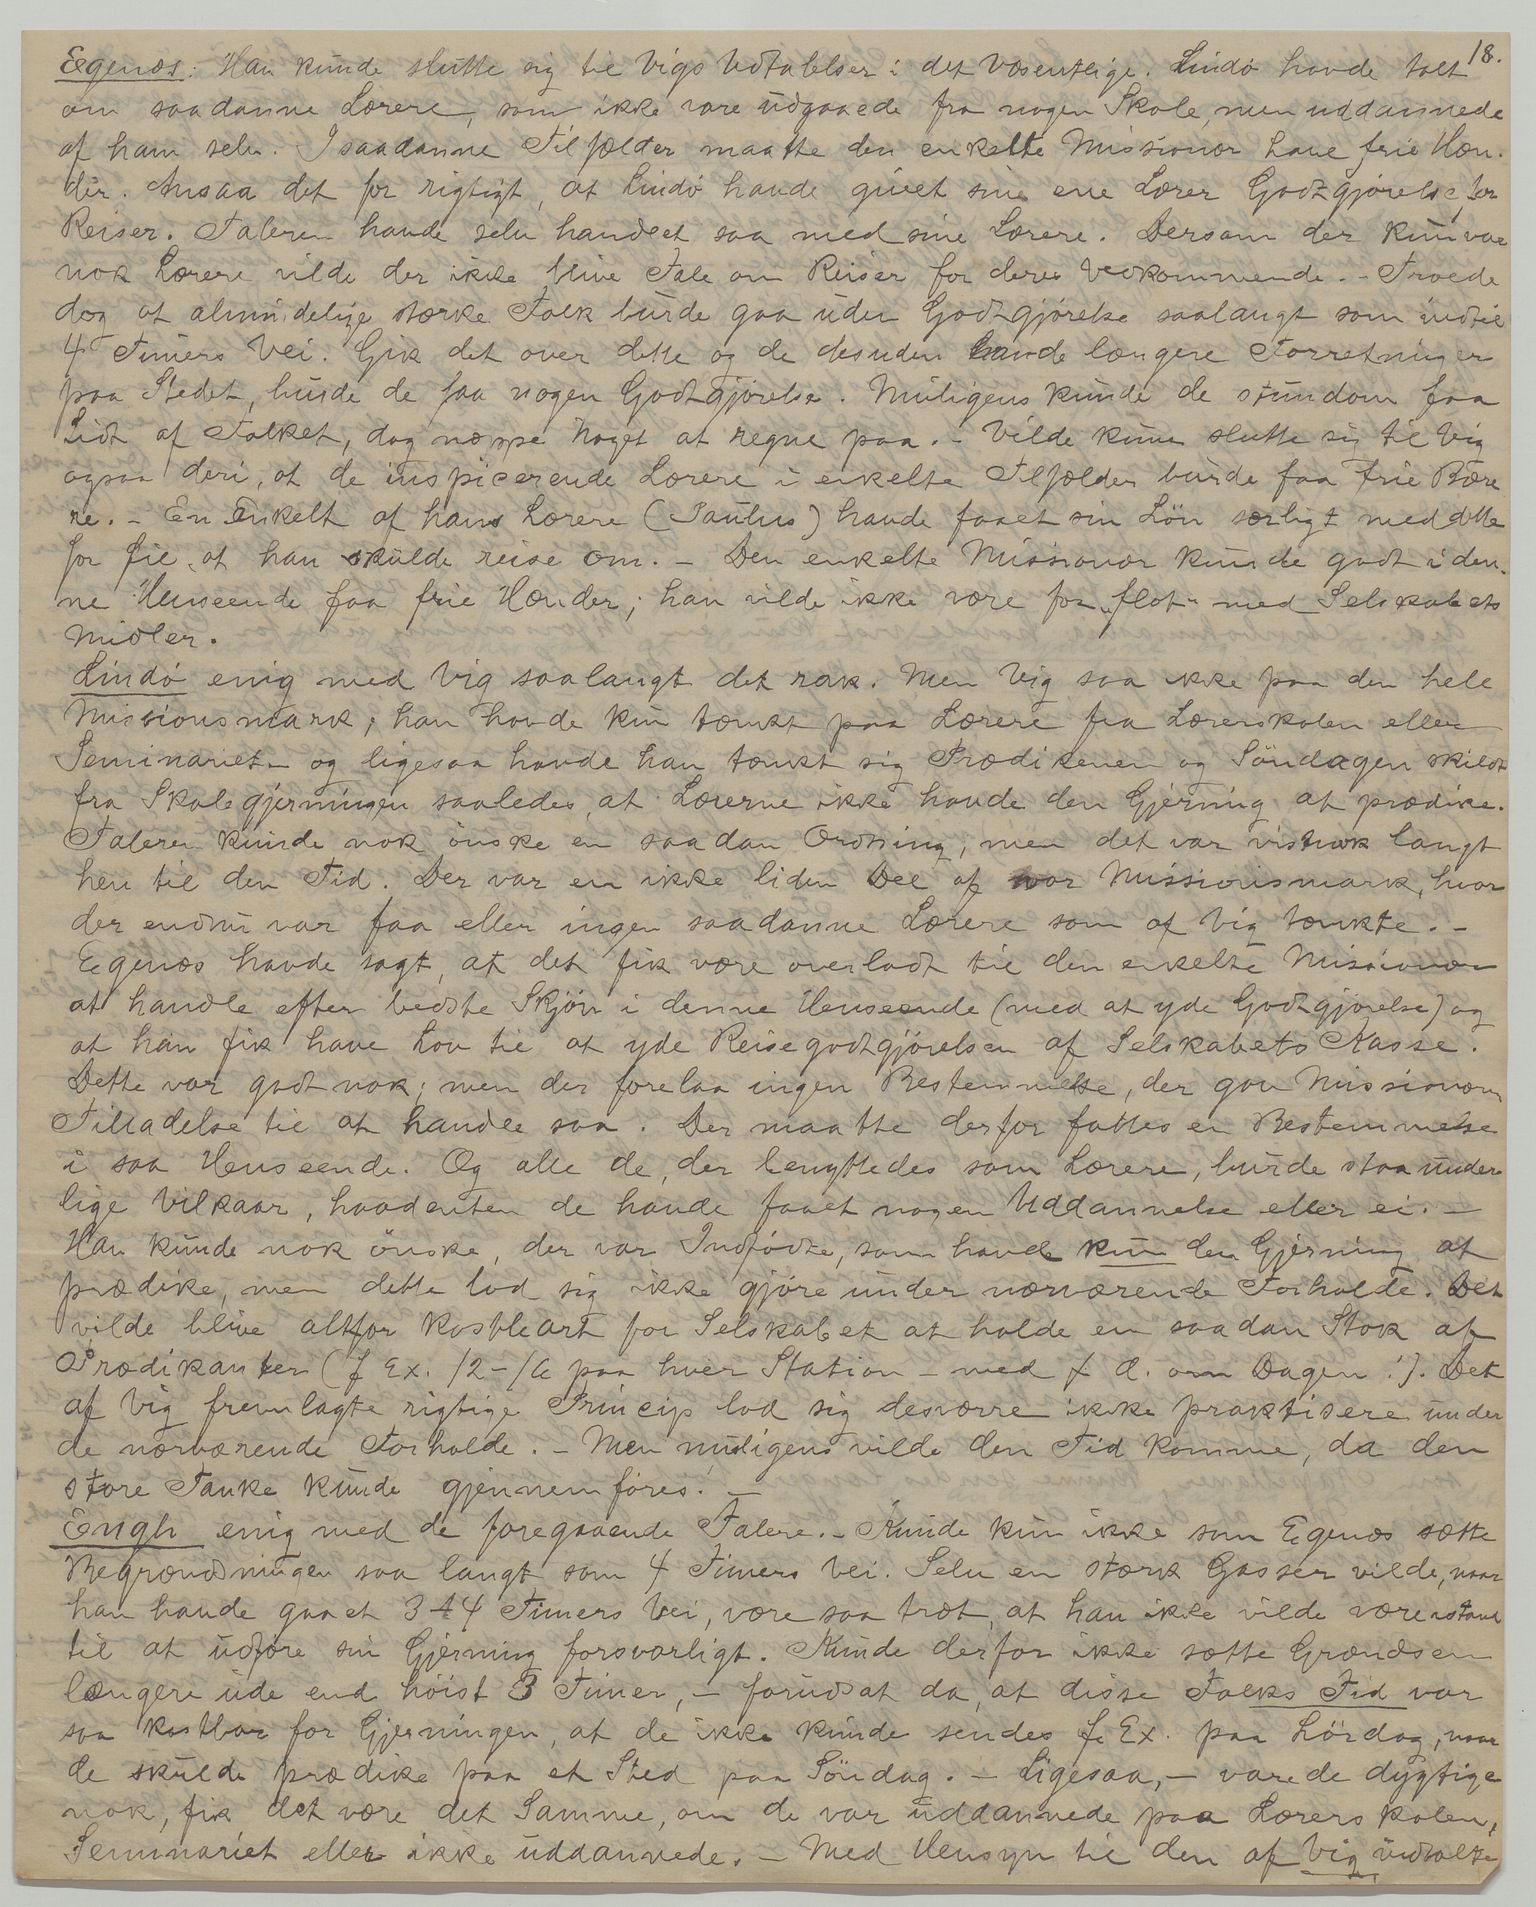 18.
Egenæs: Han kunde slutte sig til Vigs Udtalelser i det Væsentlige. Lindø havde talt
om saadanne Lærere, som ikke vare udgaaede fra nogen Skole, men uddannede
af ham selv. I saadanne Tilfælder maatte den enkelte Missionær have frie Hæn-
der. Ansaa det for rigtigt, at Lindø havde givet sine ene Lærer Godtgjørelse for
Reiser. Taleren havde selv handlet saa med sine Lærere. Dersom der kun var
nok Lærere vilde der ikke blive Tale om Reiser for deres Vedkommende. - Troede
dog at almindelige stærke Folk burde gaa uden Godtgjørelse saalangt som indtil
4 Timers Vei. Gik det over dette og de desuden havde længere Forretninger
paa Stedet, burde de faa nogen Godtgjørelse. Muligens kunde de stundom faa
Lidt af Folket, dog neppe Noget at regne paa. - Vilde kun slutte sig til Vig
ogsaa deri, at de inspicerende Lærere i enkelte Tilfælder burde faa frie Bære
re. - En Enkelt af hans Lærere (Paulus) havde faaet sin Løn særligt med dette
for Øie, at han skulde reise om. - Den enkelte Missionær kunde godt i den-
ne Henseende faa frie Hænder; han vilde ikke være for "flot" med Selskabets
Midler.
Lindø enig med Vig saalangt det rak. Men Vig saa ikke paa den hele
Missionsmark; han havde kun tænkt paa Lærere fra Lærerskolen eller
Seminariet - og ligesaa havde han tænkt sig Prædikenen og Søndagen skilt
fra Skolegjerningen saaledes, at Lærerne ikke havde den Gjerning at prædike.
Taleren kunde nok ønske en saadan Ordning; men det var vistnok langt
hen til den Tid. Der var en ikke liden Del af vor Missionsmark, hvor
der endnu var faa eller ingen saadanne Lærere som af Vig tænkte. -
Egenæs havde sagt, at det fik være overladt til den enkelte Missionær
at handle efter bedste Skjøn i denne Henseende (med at yde Godtgjørelse) og
at han fik have Lov til at yde Reisegodtgjørelsen af Selskabets Kasse.
Dette var godt nok; men der forelaa ingen Bestemmelse, der gav Missionæren
Tilladelse til at handle saa. Der maatte derfor fattes en Bestemmelse
i saa Henseende. Og alle de, der benyttedes som Lærere, burde staa under
lige Vilkaar, hvadenten de havde faaet nogen Uddannelse eller ei. -
Han kunde nok ønske, der var Indfødte, som havde kun den Gjerning at
prædike, men dette lod sig ikke gjøre under nærværende Forholde. Det
vilde blive altfor kostbart for Selskabet at holde en saadan Stok af
Prædikanter (f Ex. 12- paa hver Station - med d. om Dagen!). Det
af Vig fremlagte rigtige Princip lod sig desværre ikke praktisere under
de nærværende Forholde. - Men muligens vilde den Tid komme, da den
store Tanke kunde gjennemføres! -
Engh enig med de foregaaende Talere. - Kunde kun ikke som Egenæs sætte
Begrændsningen saa langt som 4 Timers Vei. Selv en stærk Gasser vilde, naar
han havde gaaet 3 à 4 Timers Vei, være saa træt, at han ikke vilde være istand
til at udføre sin Gjerning forsvarligt. Kunde derfor ikke sætte Grændsen
længere ude end høist 3 Timer, - forudsat da, at disse Folks Tid var
saa kostbar for Gjerningen, at de ikke kunde sendes f. Ex. paa Lørdag, naar
de skulde prædike paa et Sted paa Søndag. - Ligesaa, - vare de dygtige
nok, fik det være det Samme, om de var uddannede paa Lærerskolen,
Seminariet eller ikke uddannede. - Med Hensyn til den af Vig udtalte